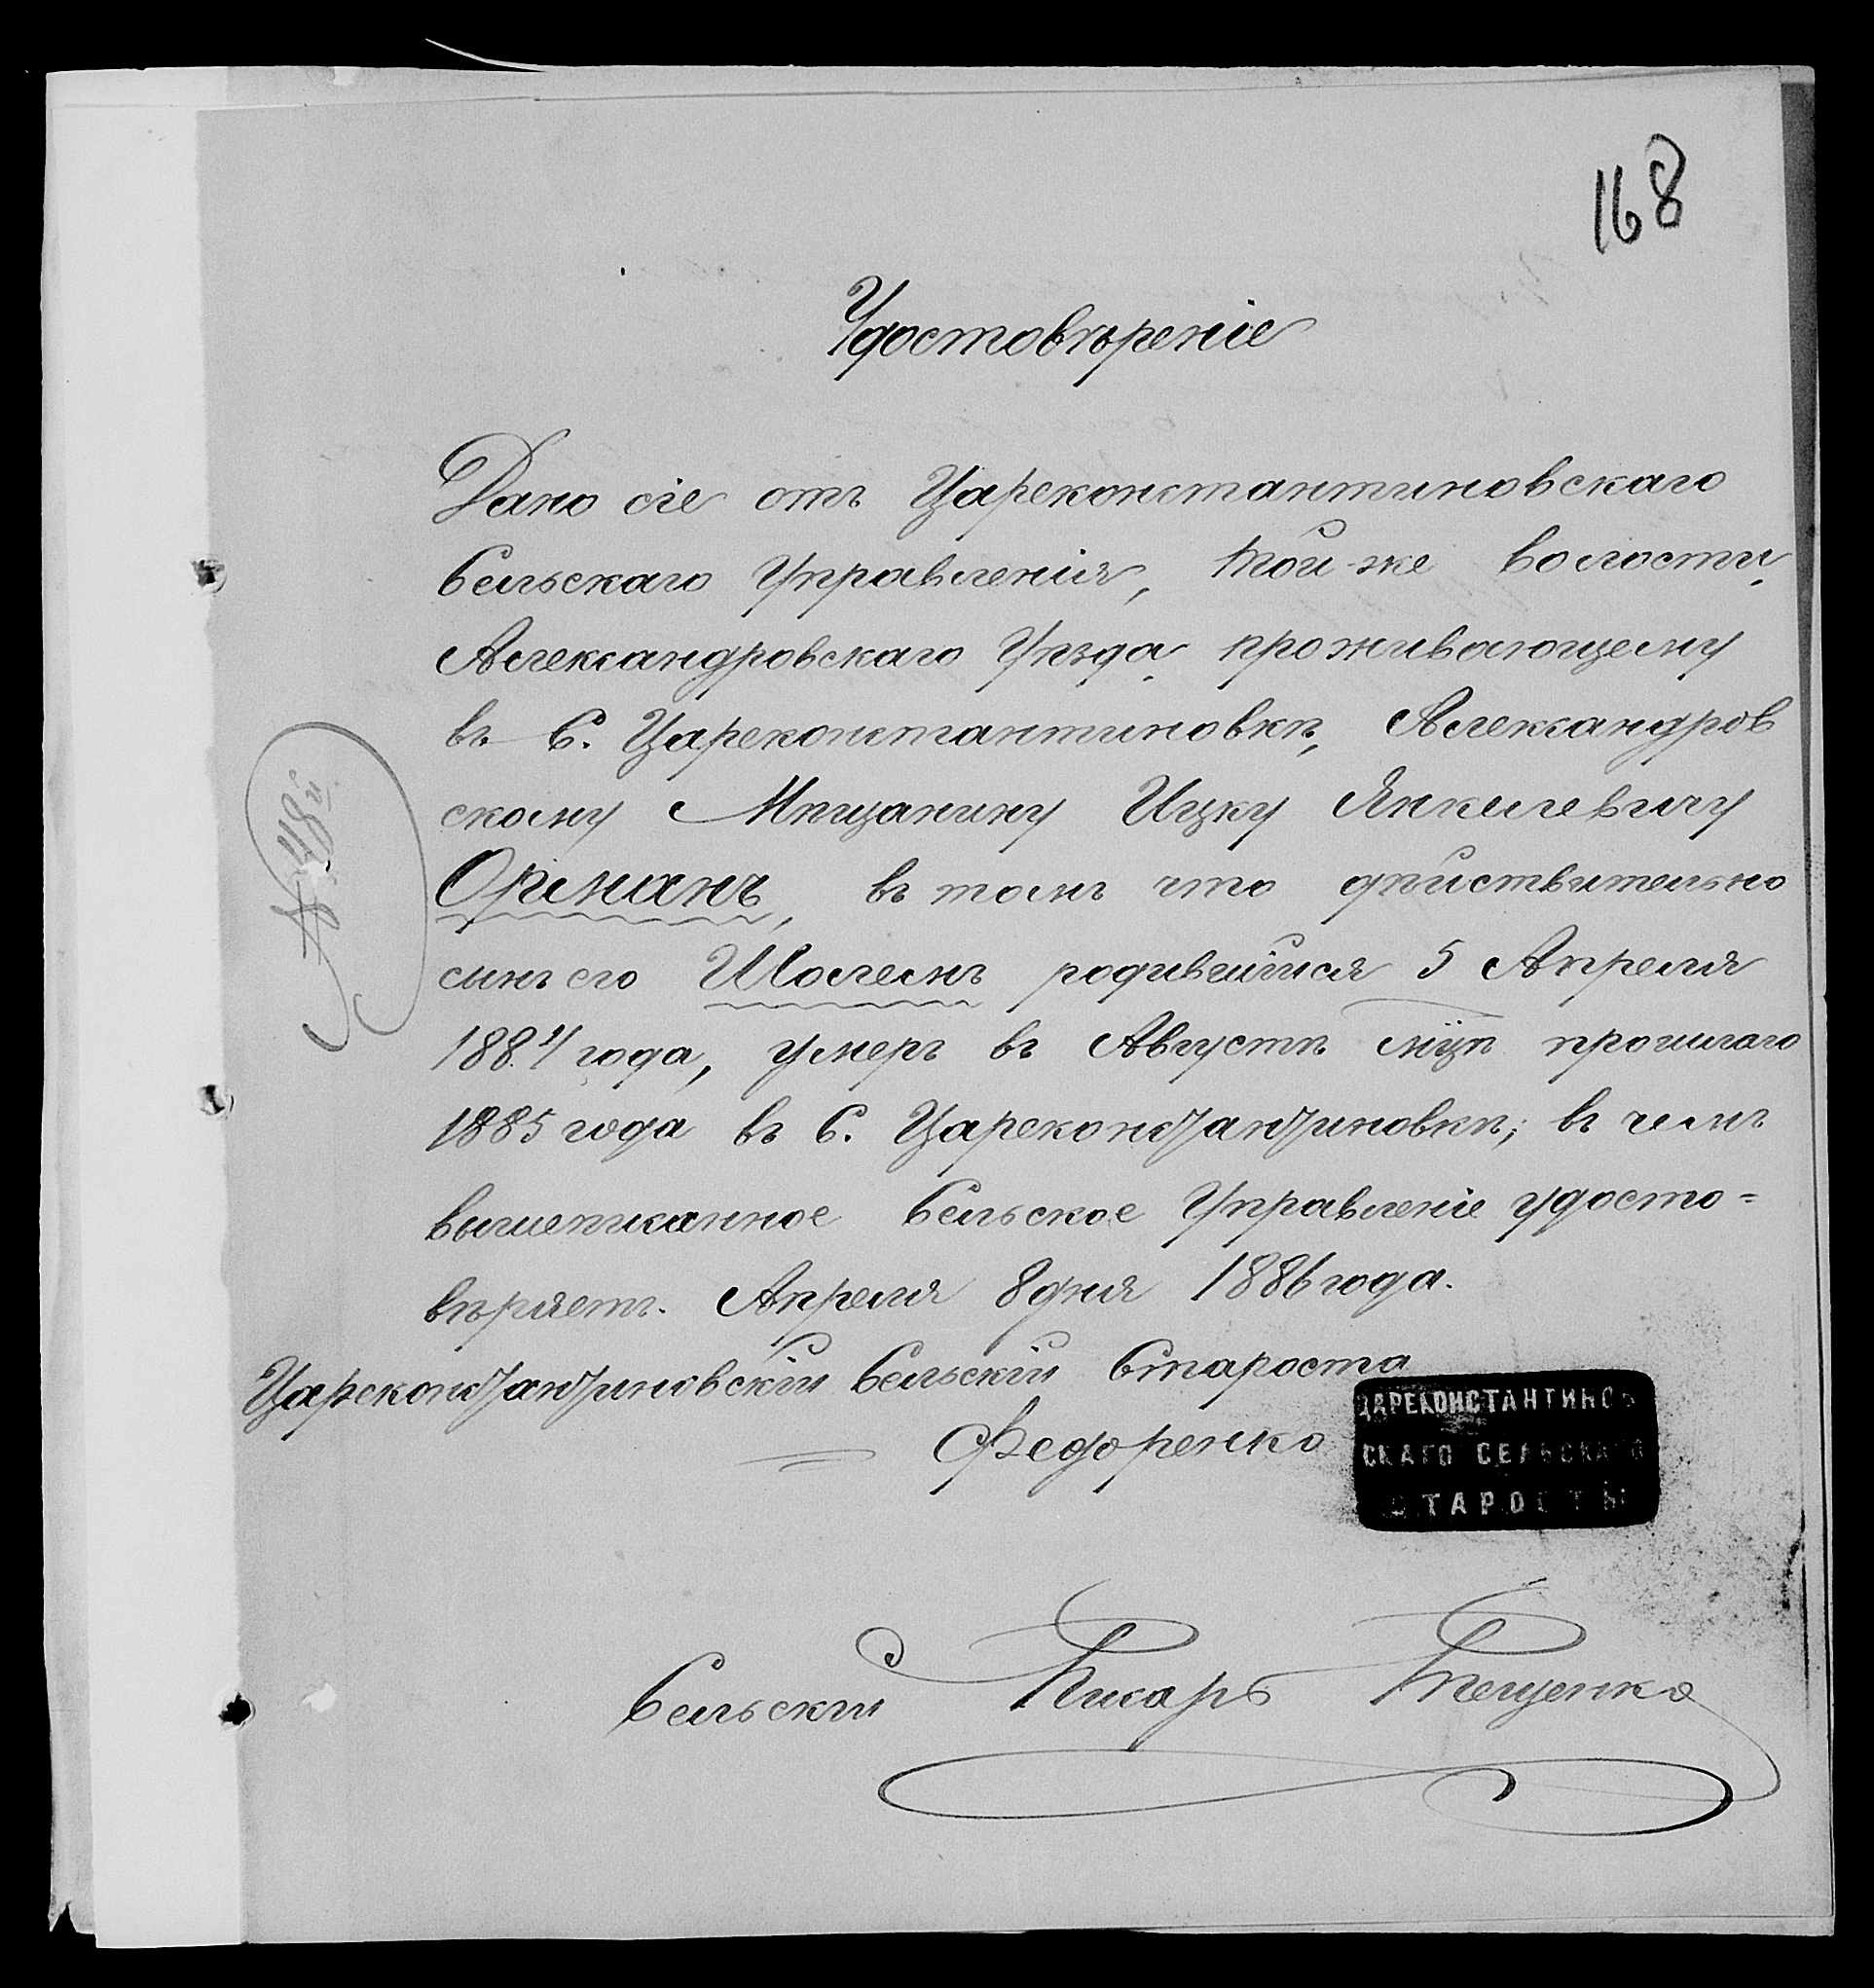 168
Удостовѣреніе
Дано сіе отъ Цареконстантиновскаго
Сельскаго Управленія, той-же волости,
Александровскаго Уѣзда, проживающему
въ С. Цареконстантиновкѣ, Александров
скому Мѣщанину Ицку Янкилевичу
Орлманъ, въ томъ что дѣйствительно
сынъ его Шолемъ родившійся 5 Апреля
1884 года, умеръ въ Августѣ мцѣ прошлаго
1885 года въ С. Цареконстантиновкѣ; въ чемъ
вышеписанное Сельское Управленіе удосто=
вѣряетъ. Апреля 8 дня 1886 года.
Цареконстантиновскій Сельскій Староста
Федоренко
ЦАРЕКОНСТАНТИНОВ
СКАГО СЕЛЬСКАГО
СТАРОСТЫ
Сельскій Писарь Тещенко
№ 48й